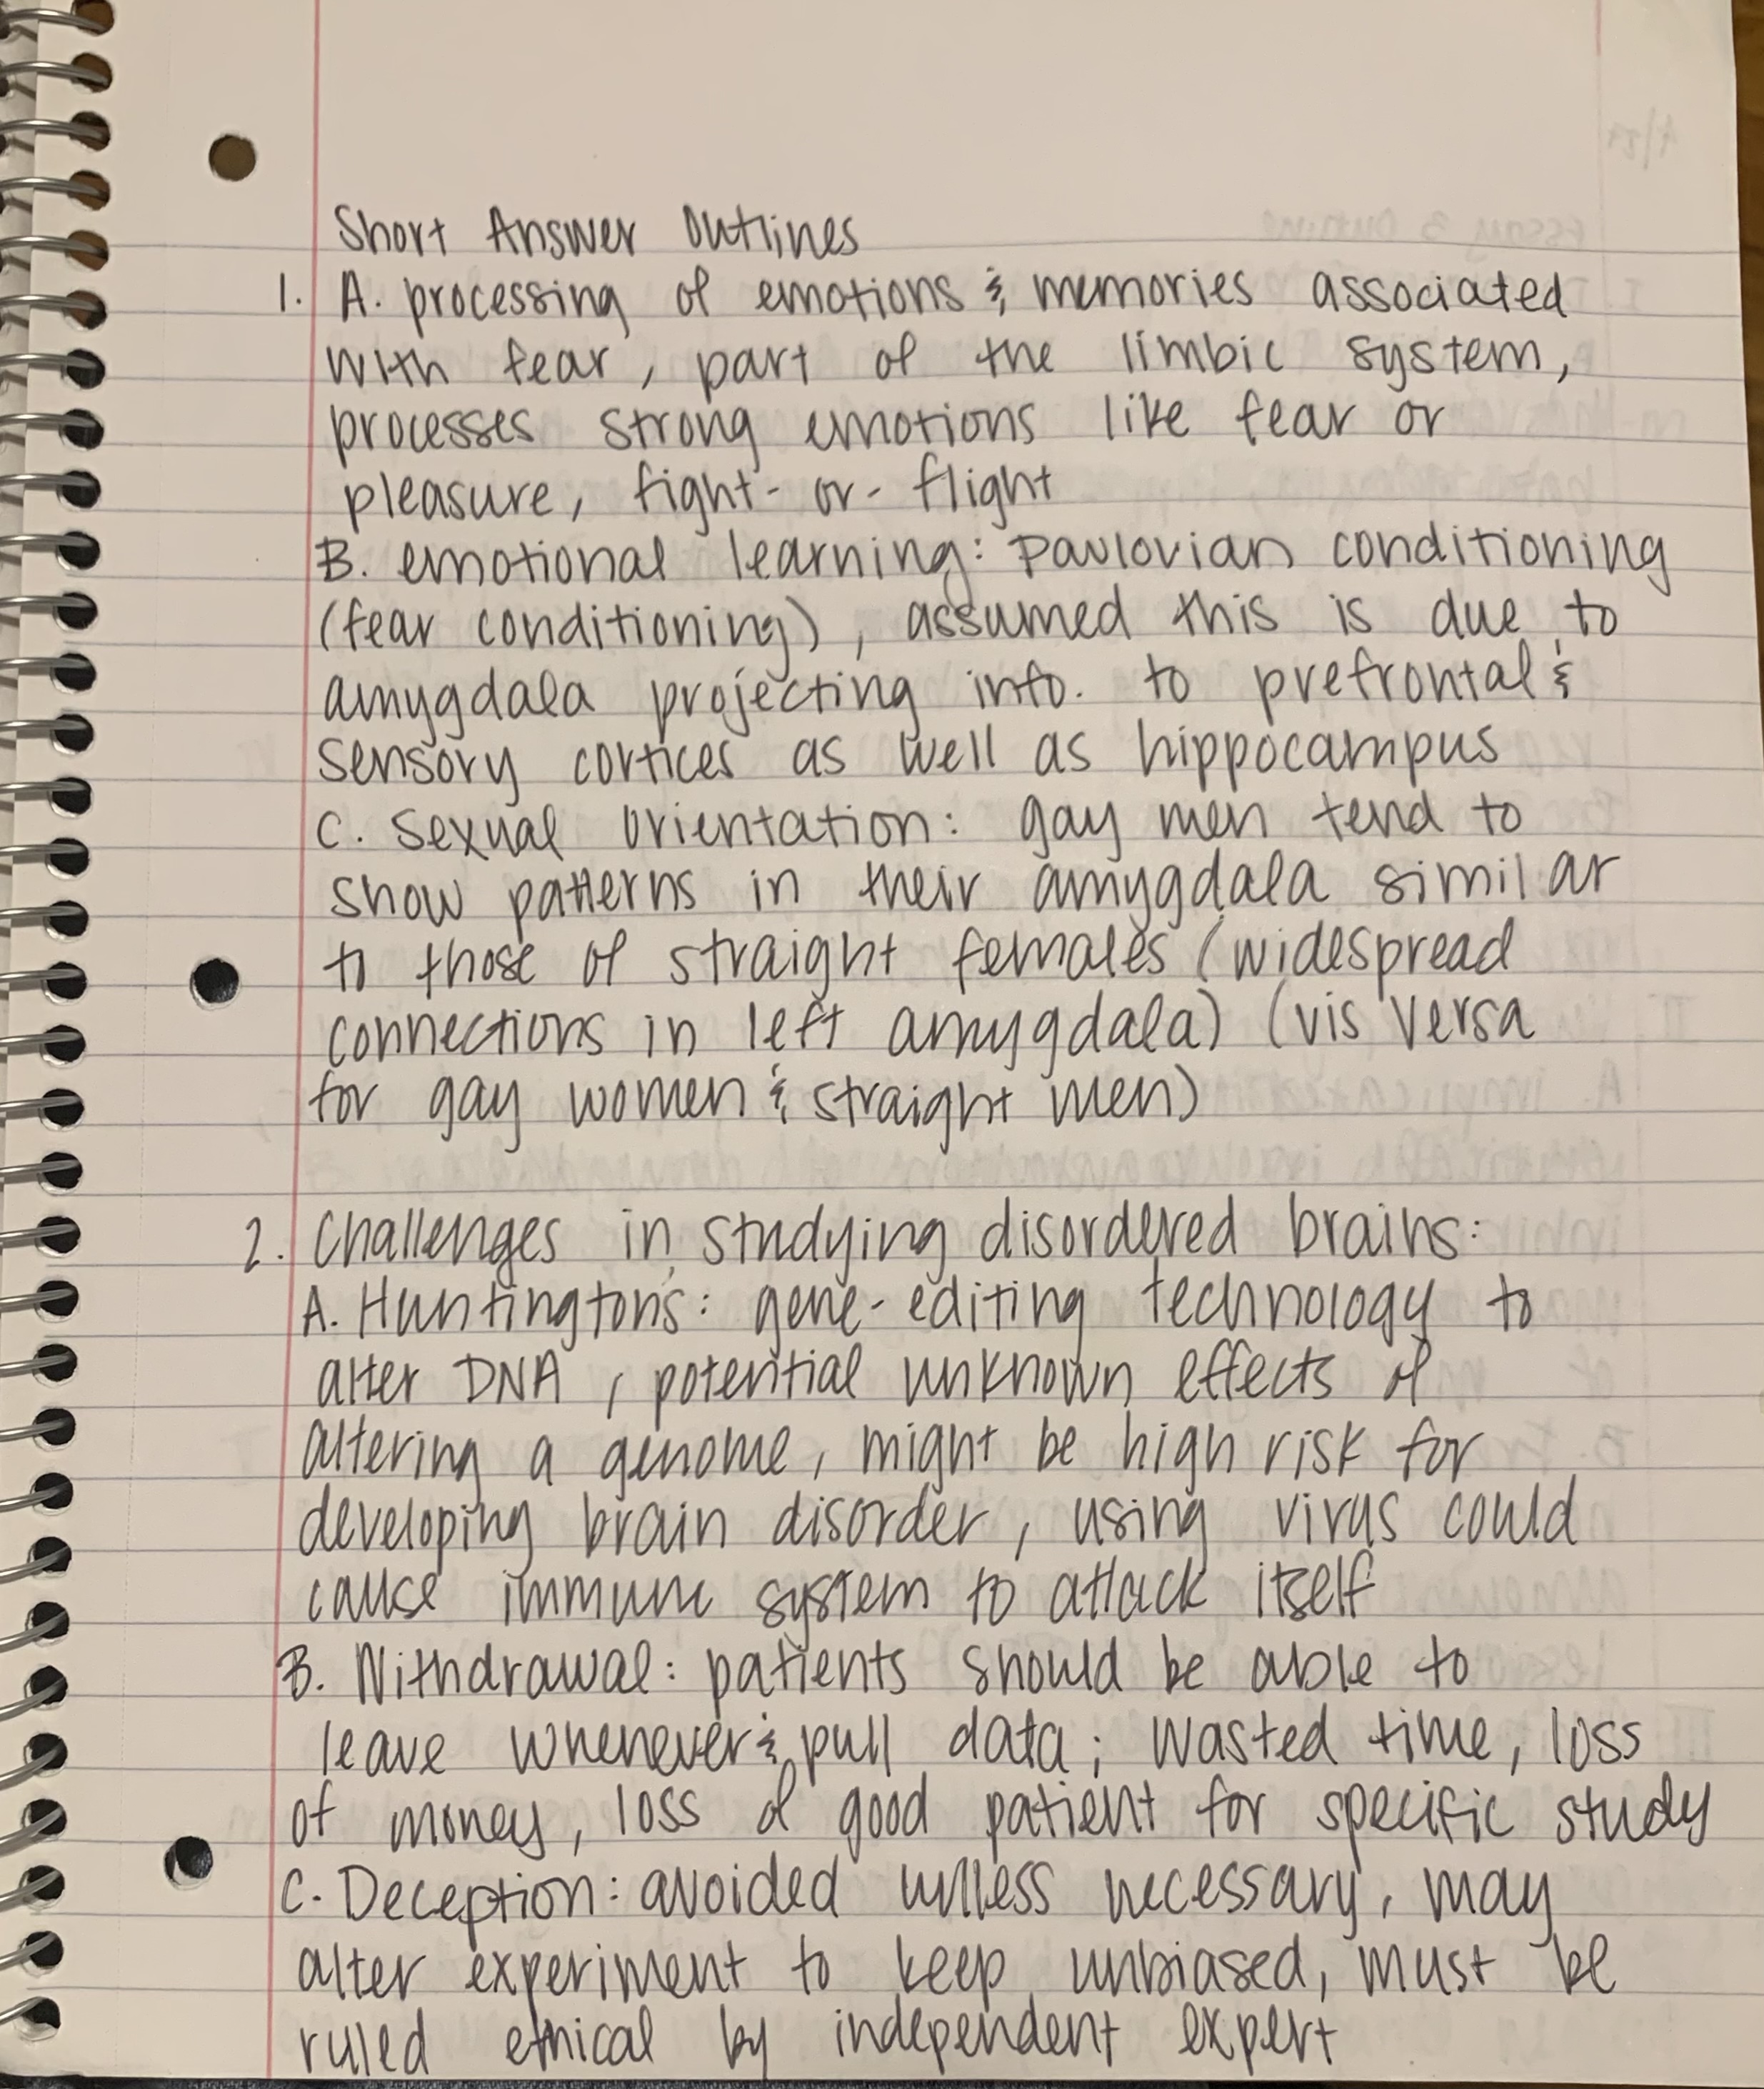 Short Answer Outlines
1. A. processing of emotions & memories associated
with fear, part of the limbic system,
processes strong emotions like fear or
pleasure, fight-or-flight
B. emotional learning: Pavlovian conditioning
(fear conditioning), assumed this is due to
amygdala projecting info. to prefrontal &
sensory cortices as well as hippocampus
C. Sexual orientation: gay men tend to
show patterns in their amygdala similar
to those of straight females (widespread
connections in left amygdala) (vis versa
for gay women & straight men)
2. Challenges in studying disordered brains:
A. Huntington's: gene-editing technology to
alter DNA, potential unknown effects of
altering a genome, might be high risk for
developing brain disorder, using virus could
cause immune system to attack itself
B. Withdrawal: patients should be able to
leave whenever & pull data; wasted time, loss
of money, loss of good patient for specific study
C. Deception: avoided unless necessary, may
alter experiment to keep unbiased, must be
ruled ethical by independent expert